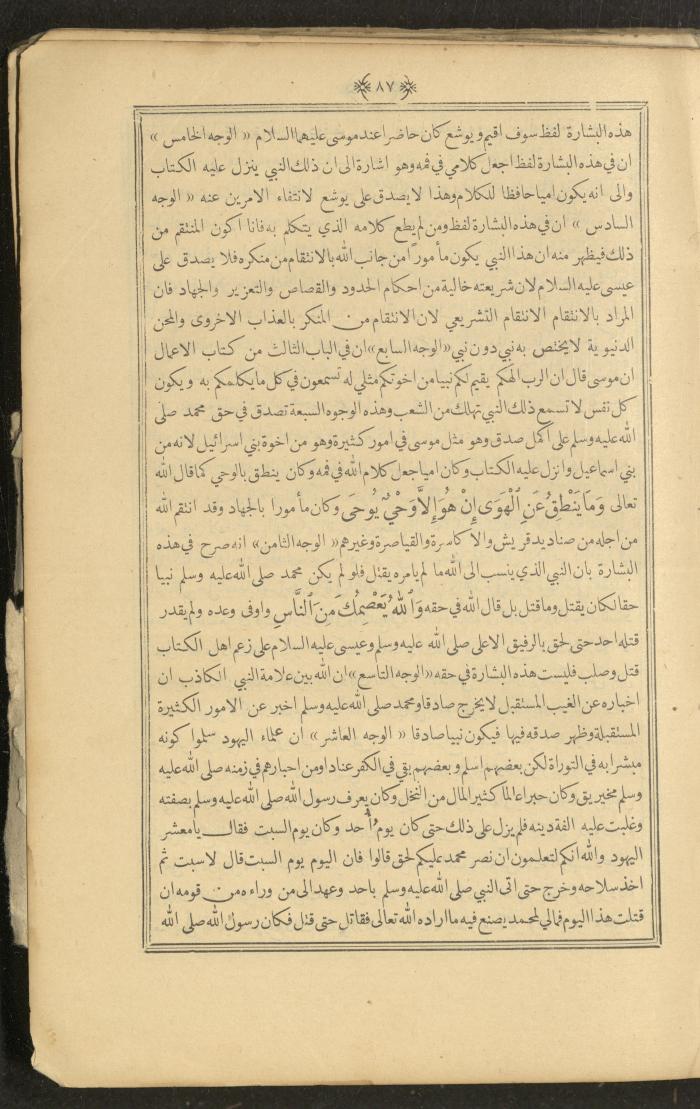 ٨٧
هذه البشارة لفظ سوف اقيم ويوشع كان حاضرا عند موسى عليهما السلام « الوجه الخامس »
ان في هذه البشارة لفظ اجعل كلامي في فمه وهو اشارة الى ان ذلك النبي ينزل عليه الكتاب
والى انه يكون اميا حافظا للكلام وهذا لا يصدق على يوشع لانتفاء الامرين عنه « الوجه
السادس » ان في هذه البشارة لفظ ومن لم يطع كلامه الذي يتكلم به فانا اكون المنتقم من
ذلك فيظهر منه ان هذا النبي يكون مأمورا من جانب الله بالانتقام من منكره فلا يصدق على
عيسى عليه السلام لان شريعته خالية من احكام الحدود والقصاص والتعزير والجهاد فان
المراد بالانتقام الانتقام التشريعي لان الانتقام من المنكر بالعذاب الاخروى والمحن
الدنيوية لا يختص به نبي دون نبي « الوجه السابع » ان في الباب الثالث من كتاب الاعمال
ان موسى قال ان الرب الهكم يقيم لكم نبيا من اخوتكم مثلي له تسمعون في كل ما يكلمكم به ويكون
كل نفس لا تسمع ذلك النبي تهلك من الشعب وهذه الوجوه السبعة تصدق في حق محمد صلى
الله عليه وسلم على اكمل صدق وهو مثل موسى في امور كثيرة وهو من اخوة بني اسرائيل لانه من
بني اسماعيل وانزل عليه الكتاب وكان اميا جعل كلام الله في فمه وكان ينطق بالوحي كما قال الله
تعالى وَمَا يَنْطِقُ عَنِ ٱلْهَوَى إِنْ هُوَ إِلَّا وَحْيٌ يُوحَى وكان مأمورا بالجهاد وقد انتقم الله
من اجله من صناديد قريش والاكاسرة والقياصرة وغيرهم « الوجه الثامن » انه صرح في هذه
البشارة بان النبي الذي ينسب الى الله ما لم يامره يقتل فلو لم يكن محمد صلى الله عليه وسلم نبيا
حقا لكان يقتل وما قتل بل قال الله في حقه وَٱللهُ يَعْصِمُكَ مِنَ ٱلنَّاسِ واوفى وعده ولم يقدر
قتله احد حتى لحق بالرفيق الاعلى صلى الله عليه وسلم وعيسى عليه السلام على زعم اهل الكتاب
قتل وصلب فليست هذه البشارة في حقه « الوجه التاسع » ان الله بين علامة النبي الكاذب ان
اخباره عن الغيب المستقبل لا يخرج صادقا ومحمد صلى الله عليه وسلم اخبر عن الامور الكثيرة
المستقبلة وظهر صدقه فيها فيكون نبيا صادقا « الوجه العاشر » ان علماء اليهود سلموا كونه
مبشرا به في التوراة لكن بعضهم اسلم وبعضهم بقي في الكفر عنادا ومن احبارهم في زمنه صلى الله عليه
وسلم مخيريق وكان حبرا عالما كثير المال من النخل وكان يعرف رسول الله صلى الله عليه وسلم بصفته
وغلبت عليه الفة دينه فلم يزل على ذلك حتى كان يوم اُحد وكان يوم السبت فقال يا معشر
اليهود والله انكم لتعلمون ان نصر محمد عليكم لحق قالوا فان اليوم يوم السبت قال لا سبت ثم
اخذ سلاحه وخرج حتى اتى النبي صلى الله عليه وسلم باحد وعهد الى من وراءه من قومه ان
قتلت هذا اليوم فمالي لمحمد يصنع فيه ما اراده الله تعالى فقاتل حتى قتل فكان رسول الله صلى الله